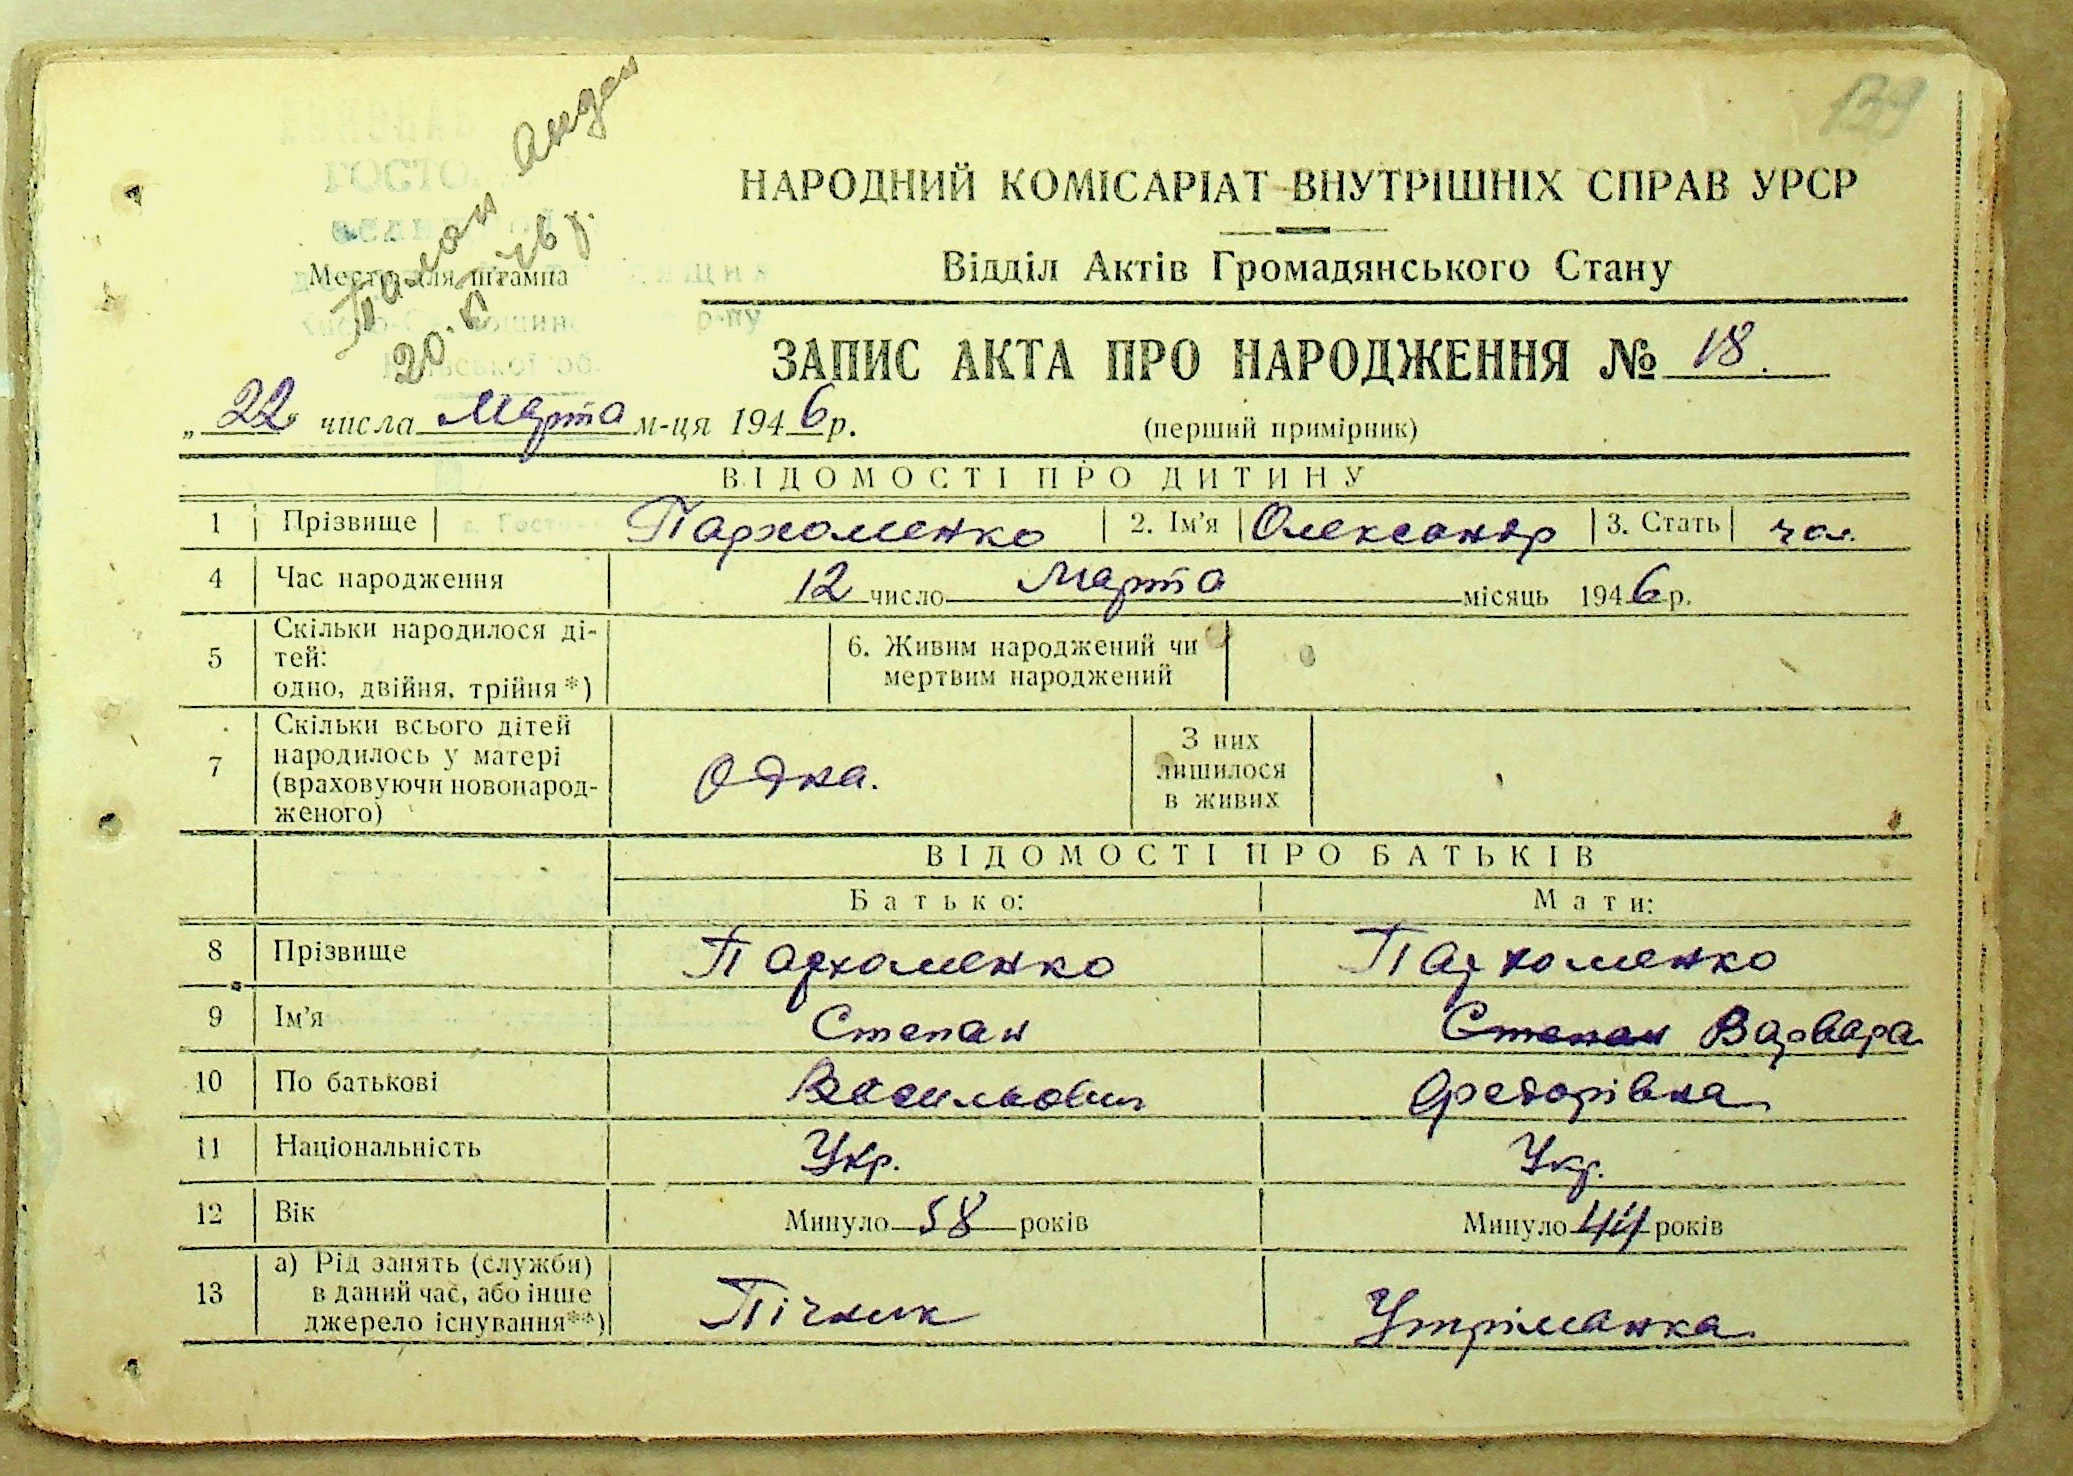 139
НАРОДНИЙ КОМІСАРІАТ ВНУТРІШНІХ СПРАВ УРСР
Відділ Актів Громадянського Стану
Место для штампа
ЗАПИС АКТА ПРО НАРОДЖЕННЯ № 18.
„ 22 числа Марта м-ця 1946 р.
(перший примірник)
ВІДОМОСТІ ПРО ДИТИНУ
1 Прізвище Пархоменко 2. Ім'я Олександр 3. Стать чол.
4 Час народження 12 число Марта місяць 1946 р.
5 Скільки народилося ді-
тей:
одно, двійня, трійня *)
6. Живим народжений чи
мертвим народжений
7 Скільки всього дітей
народилось у матері
(враховуючи новонарод-
женого)
Одна.
З них
лишилося
в живих
ВІДОМОСТІ ПРО БАТЬКІВ
Батько: Мати:
8 Прізвище Пархоменко Пархоменко
9 Ім'я Степан Степан Варвара
10 По батькові Васильович Федорівна
11 Національність Укр. Укр.
12 Вік Минуло 58 років Минуло 44 років
13 а) Рід занять (служби)
в даний час, або інше
джерело існування**)
Пічник Утріманка